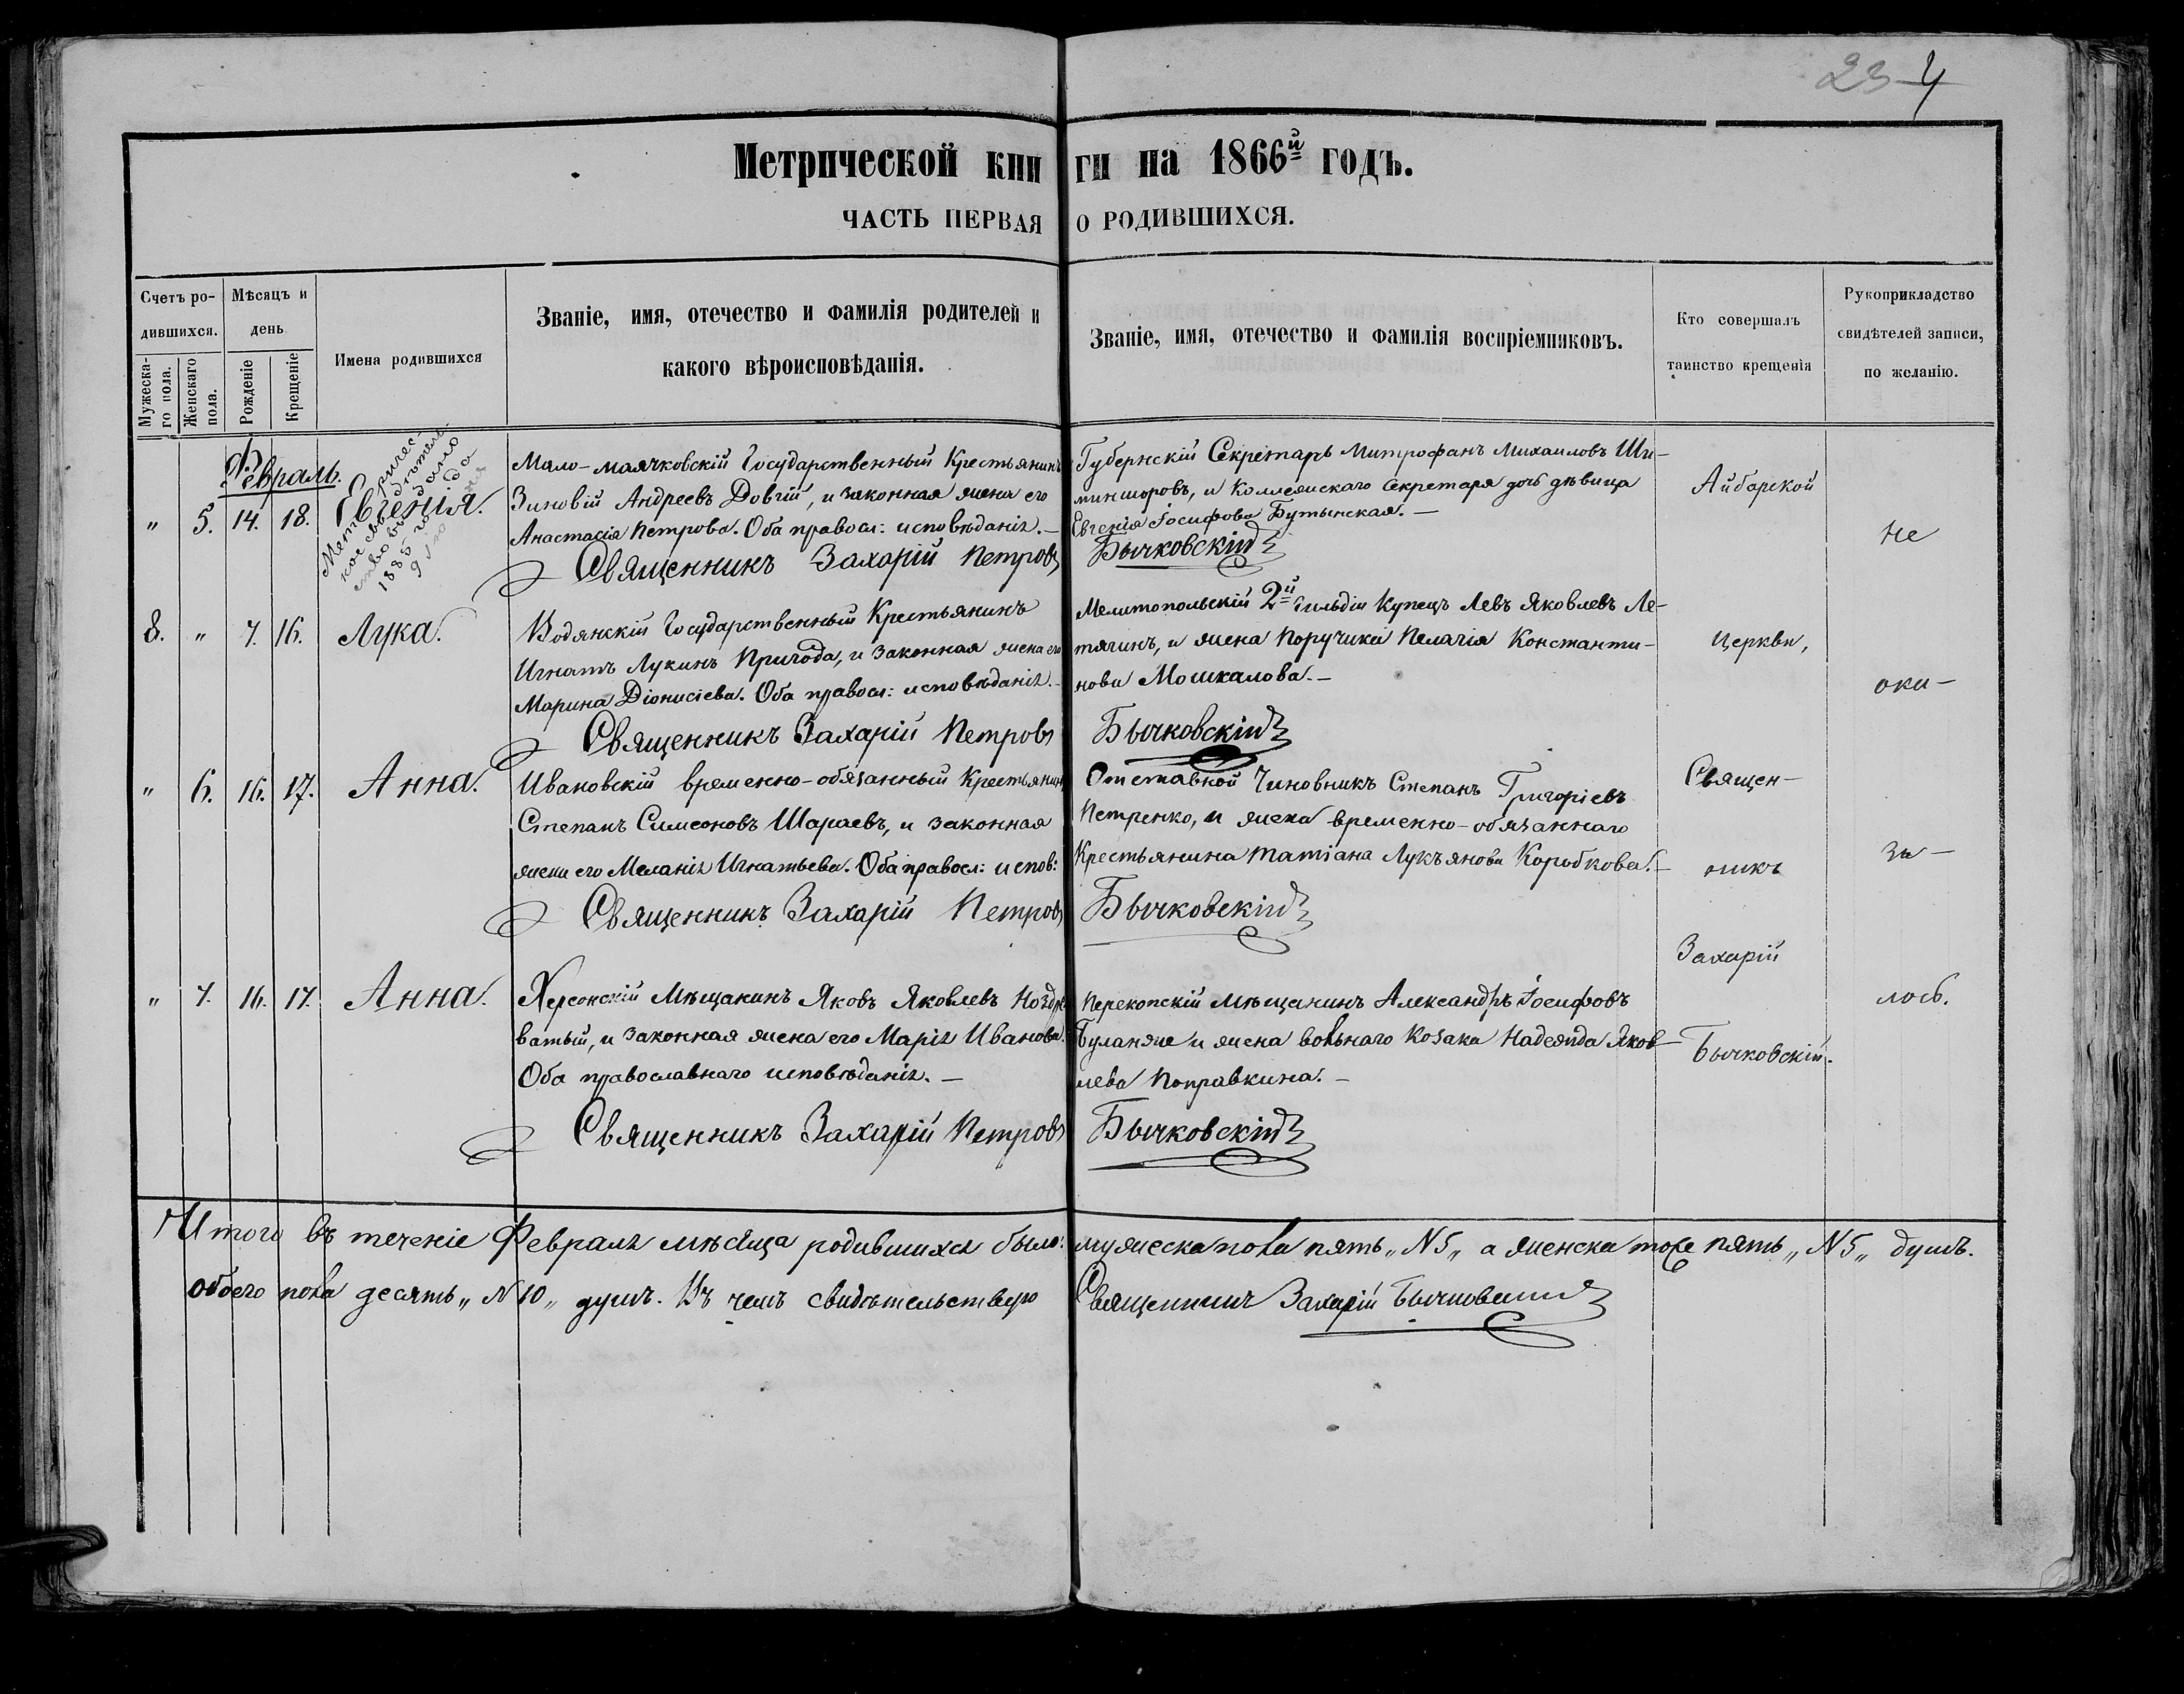 23 4
Метрической кни ги на 1866й годъ.
ЧАСТЬ ПЕРВАЯ О РОДИВШИХСЯ.
Счетъ ро-
дившихся.
Мужеска-
го пола.
Женскаго
пола.
Мѣсяцъ и
день
Рожденіе
Крещеніе
Имена родившихся
Званіе, имя, отечество и фамилія родителей и
какого вѣроисповѣданія.
Званіе, имя, отечество и фамилія воспріемниковъ.
Кто совершалъ
таинство крещенія
Рукоприкладство
свидѣтелей записи,
по желанію.
Февраль.
" 5. 14. 18. Евгенія.
Метричес-
кое свидѣтель-
ство выдано
1885 года
Мало-маячковскій Государственный Крестьянинъ
Зиновій Андреевъ Довгій, и законная жена его
Анастасія Петрова. Оба правосл: исповѣданія.—
Губернскій Секретарь Митрофанъ Михаиловъ Ши-
миншоровъ, и Коллежскаго Секретаря дочь дѣвица
Евгенія Іосифова Бутынская.—
Священникъ Захарій Петровъ Бычковскій
8. " 7. 16. Лука.
Водянскій Государственный Крестьянинъ
Игнатъ Лукинъ Пригода, и законная жена его
Марина Діонисіева. Оба правосл: исповѣданія.—
Мелитопольскій 2й гильдіи Купецъ Левъ Яковлевъ Ле-
тягинъ, и жена Поручика Пелагія Константи-
нова Мошкалова.—
Священникъ Захарій Петровъ Бычковскій
" 6. 16. 17. Анна.
Ивановскій временно-обязанный Крестьянинъ
Степанъ Симеоновъ Шараевъ, и законная
жена его Меланія Игнатьева. Оба правосл: испов:
Отставной Чиновникъ Степанъ Григоріевъ
Петренко, и жена временно-обязаннаго
Крестьянина Татіана Лукъянова Коробкова.—
Священникъ Захарій Петровъ Бычковскій
" 7. 16. 17. Анна.
Херсонскій Мѣщанинъ Яковъ Яковлевъ Ноздре
ватый, и законная жена его Марія Иванова.
Оба православнаго исповѣданія.—
Перекопскій мѣщанинъ Александръ Іосифовъ
Буланже и жена вольнаго Козака Надежда Яков-
лева Поправкина.—
Священникъ Захарій Петровъ Бычковскій
Айбарской
Церкви,
Священ-
никъ
Захарій
Бычковскій.
Не
ока-
за-
лось.
Итого въ теченіе Февраля мѣсяца родившихся было: мужеска пола пять „N5„ а женска тоже пять „N5„ душъ.
обоего пола десять „N10„ душъ. Въ чемъ свидѣтельствую Священникъ Захарій Бычковскій